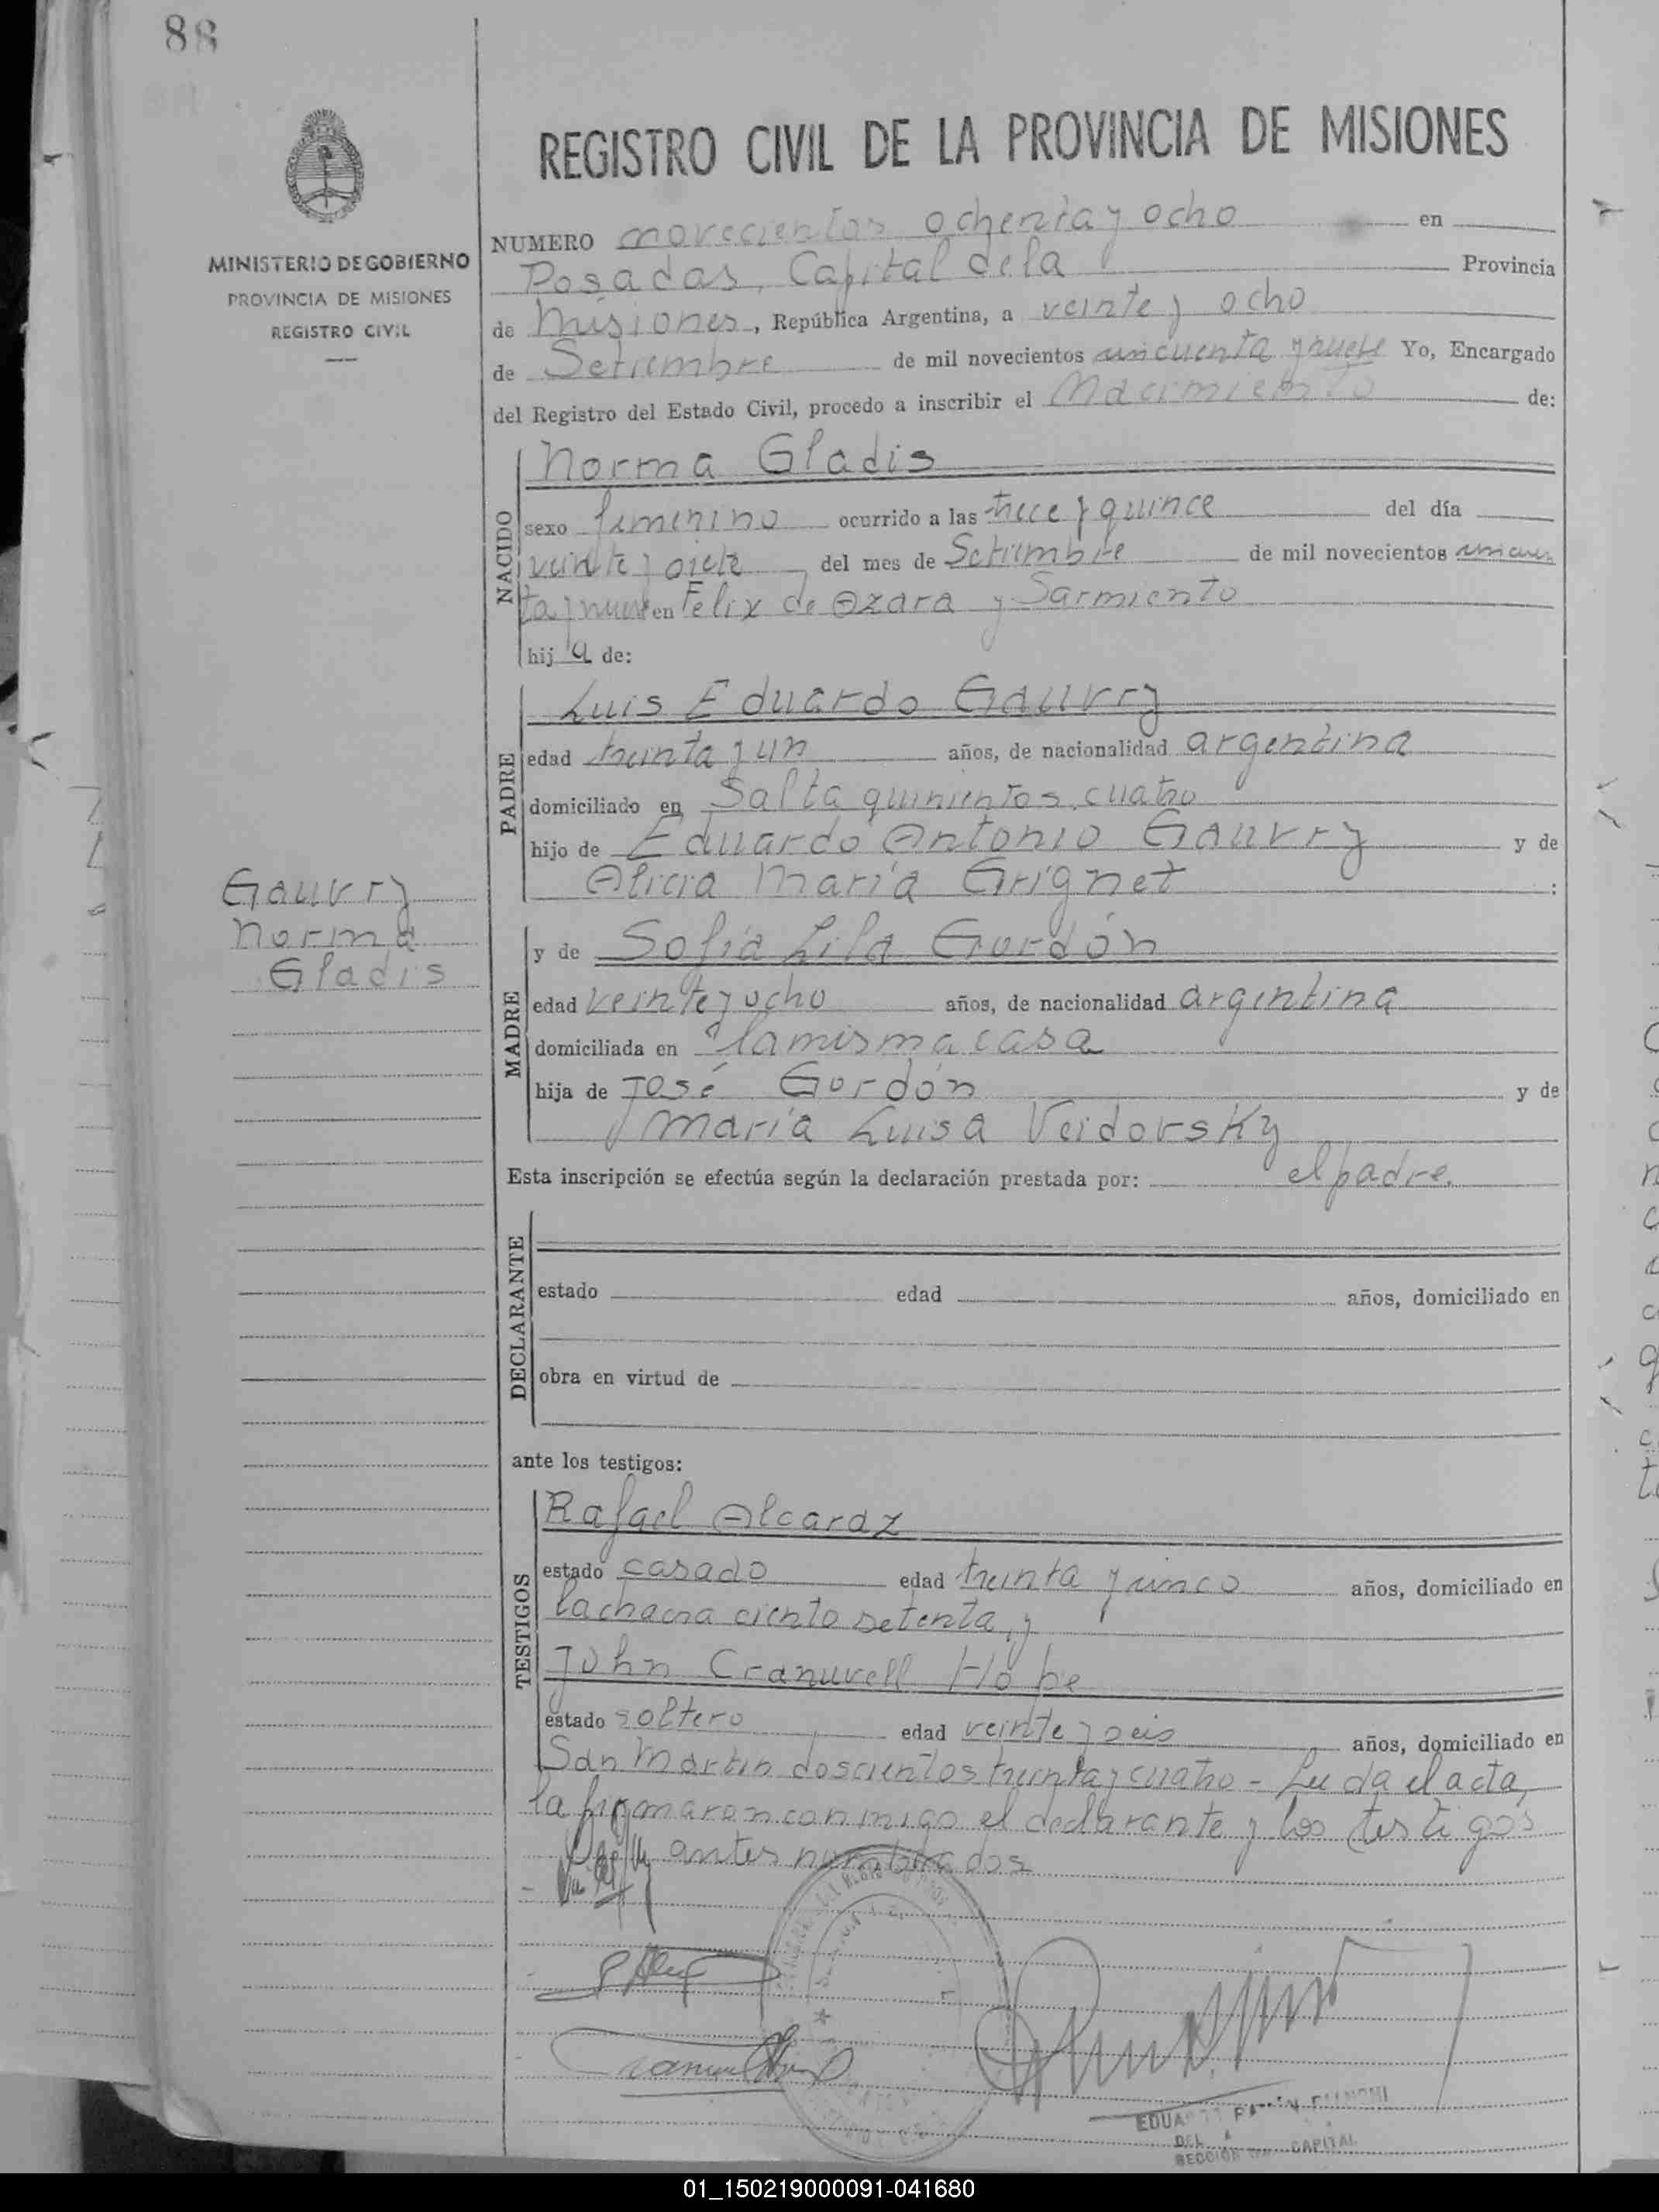 88
REGISTRO CIVIL DE LA PROVINCIA DE MISIONES
MINISTERIO DE GOBIERNO
PROVINCIA DE MISIONES
REGISTRO CIVIL
NUMERO novecientos ochenta y ocho en
Posadas, Capital de la Provincia
de Misiones, República Argentina, a veinte y ocho
de Setiembre de mil novecientos cincuenta y nueve Yo, Encargado
del Registro del Estado Civil, procedo a inscribir el Nacimiento de:
NACIDO
Norma Gladis
sexo femenino ocurrido a las trece y quince del día
veinte y siete del mes de Setiembre de mil novecientos cincuen
ta y nueve en Felix de Azara y Sarmiento
hij a de:
PADRE
Luis Eduardo Gauvry
edad treinta y un años, de nacionalidad argentina
domiciliado en Salta quinientos cuatro
hijo de Eduardo Antonio Gauvry y de
Alicia María Grignet :
Gauvry
Norma
Gladis
MADRE
y de Sofía Lila Gordón
edad veinte y ocho años, de nacionalidad argentina
domiciliada en la misma casa
hija de José Gordón y de
María Luisa Veidovsky
Esta inscripción se efectúa según la declaración prestada por: el padre.
DECLARANTE
estado edad años, domiciliado en
obra en virtud de
ante los testigos:
TESTIGOS
Rafael Alcaraz
estado casado edad treinta y cinco años, domiciliado en
la chacra ciento setenta, y
John Cranuvell Hope
estado soltero edad veinte y seis años, domiciliado en
San Martin doscientos treinta y cuatro - Leída el acta,
la firmaron conmigo el declarante y los testigos
antes nombrados
SECCION CAPITAL
01_150219000091-041680